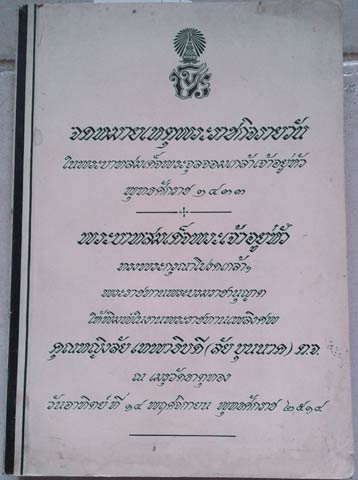 จดหมายเหตุพระราชกิจรายวัน
ในพระบาทสมเด็จพระจุลจอมเกล้าเจ้าอยู่หัว
พุทธศักราช ๒๔๓๓
พระบาทสมเด็จพระเจ้าอยู่หัว
ทรงพระกรุณาโปรดเกล้าฯ
พระราชทานพระบรมราชานุญาต
ให้พิมพ์ในงานพระราชทานเพลิงศพ
คุณหญิงลัย เทพาธิบดี (ลัย บุนนาค) ต.จ.
ณ เมรุวัดธาตุทอง
วันอาทิตย์ ที่ ๑๔ พฤศจิกายน พุทธศักราช ๒๕๑๔